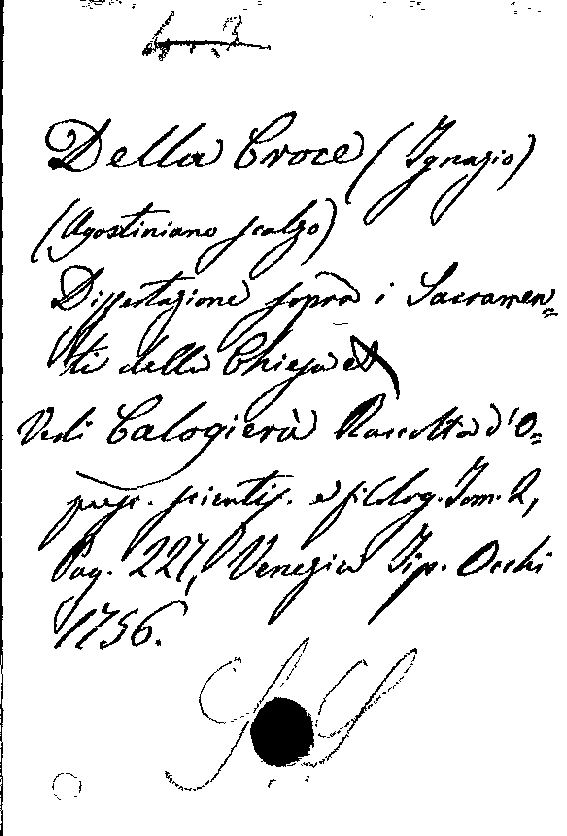 Della Croce (Ignazio)
(Agostiniano scalzo)
Dissertazione sopra i Sacramen=
ti della Chiesa
Vedi Calogierà Raccolta d'O=
pusc. scientif. e filolog. Tom. 2,
Pag. 227, Venezia Tip. Occhi
1756.